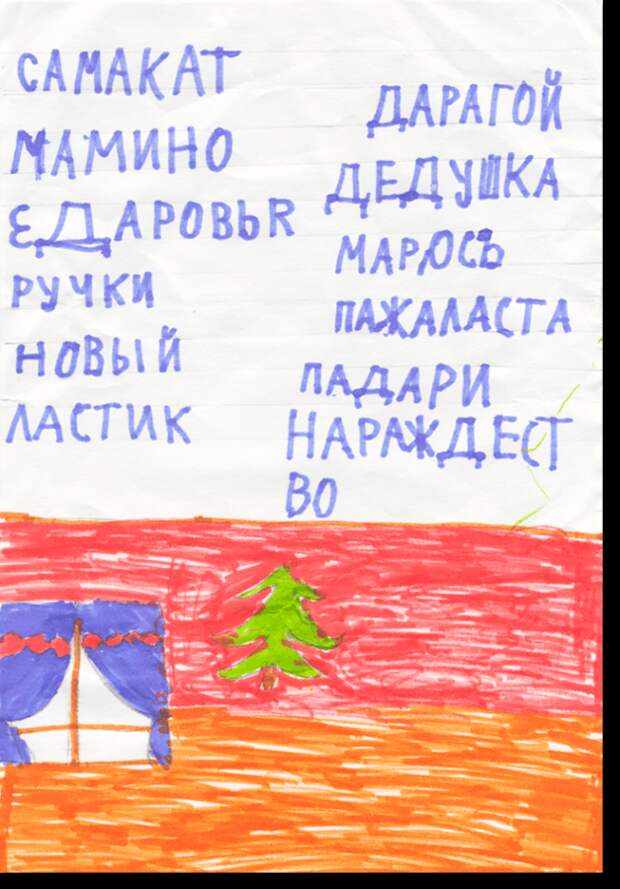 ДАРАГОЙ
ДЕДУШКА
МАРЮСЬ
ПАЖАЛАСТА
ПАДАРИ
НАРАЖДЕСТ
ВО
САМАКАТ
МАМИНО
ЕДАРОВЬЯ
РУЧКИ
НОВЫЙ
ЛАСТИК